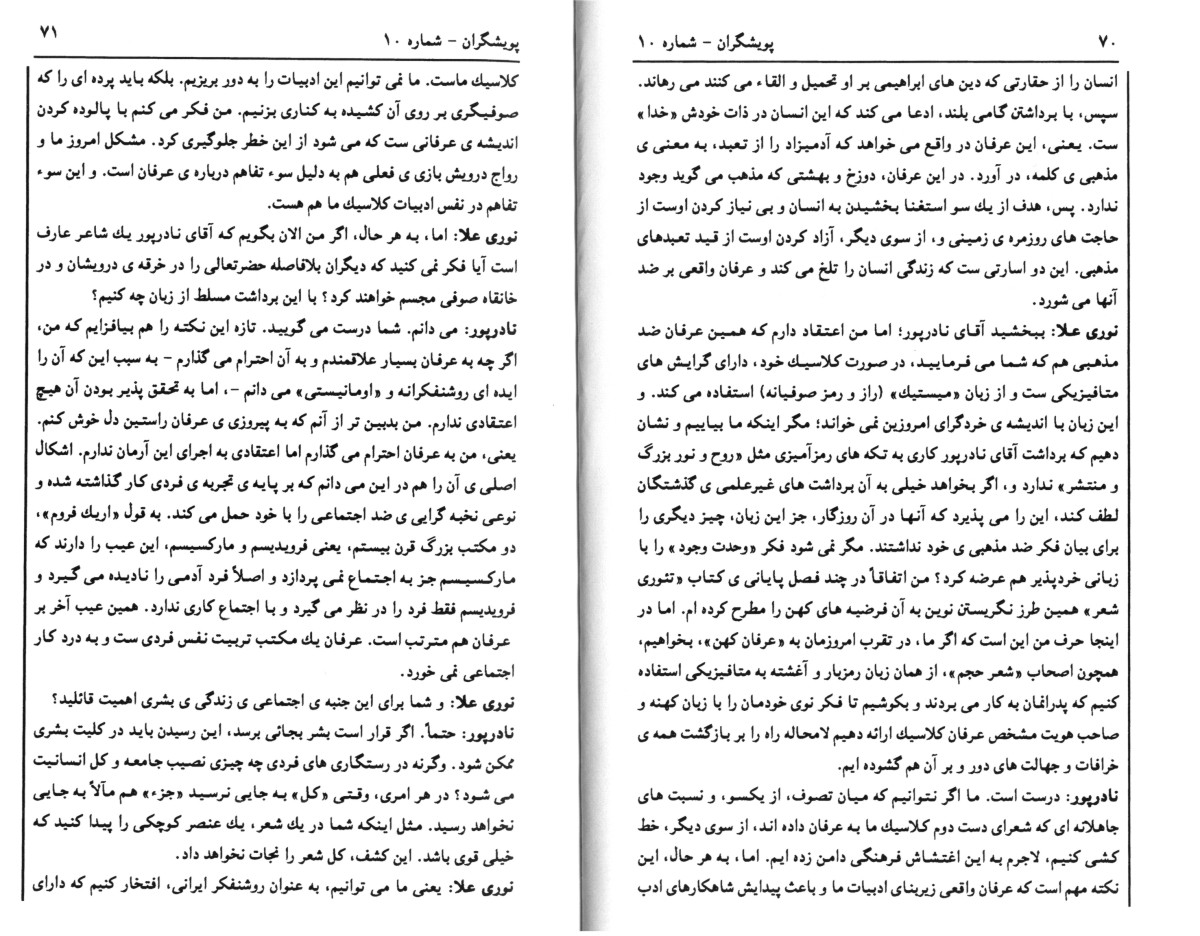 ۷۰
پویشگران - شماره ۱۰
انسان را از حقارتی که دین های ابراهیمی بر او تحمیل و القاء می کنند می رهاند.
سپس، با برداشتن گامی بلند، ادعا می کند که این انسان در ذات خودش «خدا»
ست. یعنی، این عرفان در واقع می خواهد که آدمیزاد را از تعبد، به معنی ی
مذهبی ی کلمه، در آورد. در این عرفان، دوزخ و بهشتی که مذهب می گوید وجود
ندارد. پس، هدف از یك سو استغنا بخشیدن به انسان و بی نیاز کردن اوست از
حاجت های روزمره ی زمینی و، از سوی دیگر، آزاد کردن اوست از قید تعبدهای
مذهبی. این دو اسارتی ست که زندگی انسان را تلخ می کند و عرفان واقعی بر ضد
آنها می شورد.
نوری علا: ببخشید آقای نادرپور؛ اما من اعتقاد دارم که همین عرفان ضد
مذهبی هم که شما می فرمایید، در صورت کلاسیك خود، دارای گرایش های
متافیزیکی ست و از زبان «میستیك» (راز و رمز صوفیانه) استفاده می کند. و
این زبان با اندیشه ی خردگرای امروزین نمی خواند؛ مگر اینکه ما بیاییم و نشان
دهیم که برداشت آقای نادرپور کاری به تکه های رمزآمیزی مثل «روح و نور بزرگ
و منتشر» ندارد و، اگر بخواهد خیلی به آن برداشت های غیرعلمی ی گذشتگان
لطف کند، این را می پذیرد که آنها در آن روزگار، جز این زبان، چیز دیگری را
برای بیان فکر ضد مذهبی ی خود نداشتند. مگر نمی شود فکر «وحدت وجود» را با
زبانی خردپذیر هم عرضه کرد؟ من اتفاقاً در چند فصل پایانی ی کتاب «تئوری
شعر» همین طرز نگریستن نوین به آن فرضیه های کهن را مطرح کرده ام. اما در
اینجا حرف من این است که اگر ما، در تقرب امروزمان به «عرفان کهن»، بخواهیم،
همچون اصحاب «شعر حجم»، از همان زبان رمزبار و آغشته به متافیزیکی استفاده
کنیم که پدرانمان به کار می بردند و بکوشیم تا فکر نوی خودمان را با زبان کهنه و
صاحب هویت مشخص عرفان کلاسیك ارائه دهیم لامحاله راه را بر بازگشت همه ی
خرافات و جهالت های دور و بر آن هم گشوده ایم.
نادرپور: درست است. ما اگر نتوانیم که میان تصوف، از یکسو، و نسبت های
جاهلانه ای که شعرای دست دوم کلاسیك ما به عرفان داده اند، از سوی دیگر، خط
کشی کنیم، لاجرم به این اغتشاش فرهنگی دامن زده ایم. اما، به هر حال، این
نکته مهم است که عرفان واقعی زیربنای ادبیات ما و باعث پیدایش شاهکارهای ادب
پویشگران - شماره ۱۰
۷۱
کلاسیك ماست. ما نمی توانیم این ادبیات را به دور بریزیم. بلکه باید پرده ای را که
صوفیگری بر روی آن کشیده به کناری بزنیم. من فکر می کنم با پالوده کردن
اندیشه ی عرفانی ست که می شود از این خطر جلوگیری کرد. مشکل امروز ما و
رواج درویش بازی ی فعلی هم به دلیل سوء تفاهم درباره ی عرفان است. و این سوء
تفاهم در نفس ادبیات کلاسیك ما هم هست.
نوری علا: اما، به هر حال، اگر من الان بگویم که آقای نادرپور یك شاعر عارف
است آیا فکر نمی کنید که دیگران بلافاصله حضرتعالی را در خرقه ی درویشان و در
خانقاه صوفی مجسم خواهند کرد؟ با این برداشت مسلط از زبان چه کنیم؟
نادرپور: می دانم. شما درست می گویید. تازه این نکته را هم بیافزایم که من،
اگر چه به عرفان بسیار علاقمندم و به آن احترام می گذارم - به سبب این که آن را
ایده ای روشنفکرانه و «اومانیستی» می دانم -، اما به تحقق پذیر بودن آن هیچ
اعتقادی ندارم. من بدبین تر از آنم که به پیروزی ی عرفان راستین دل خوش کنم.
یعنی، من به عرفان احترام می گذارم اما اعتقادی به اجرای این آرمان ندارم. اشکال
اصلی ی آن را هم در این می دانم که بر پایه ی تجربه ی فردی کار گذاشته شده و
نوعی نخبه گرایی ی ضد اجتماعی را با خود حمل می کند. به قول «اریك فروم»،
دو مکتب بزرگ قرن بیستم، یعنی فرویدیسم و مارکسیسم، این عیب را دارند که
مارکسیسم جز به اجتماع نمی پردازد و اصلاً فرد آدمی را نادیده می گیرد و
فرویدیسم فقط فرد را در نظر می گیرد و با اجتماع کاری ندارد. همین عیب آخر بر
عرفان هم مترتب است. عرفان یك مکتب تربیت نفس فردی ست و به درد کار
اجتماعی نمی خورد.
نوری علا: و شما برای این جنبه ی اجتماعی ی زندگی ی بشری اهمیت قائلید؟
نادرپور: حتماً. اگر قرار است بشر بجائی برسد، این رسیدن باید در کلیت بشری
ممکن شود. وگرنه در رستگاری های فردی چه چیزی نصیب جامعه و کل انسانیت
می شود؟ در هر امری، وقتی «کل» به جایی نرسید «جزء» هم مآلاً به جایی
نخواهد رسید. مثل اینکه شما در یك شعر، یك عنصر کوچکی را پیدا کنید که
خیلی قوی باشد. این کشف، کل شعر را نجات نخواهد داد.
نوری علا: یعنی ما می توانیم، به عنوان روشنفکر ایرانی، افتخار کنیم که دارای